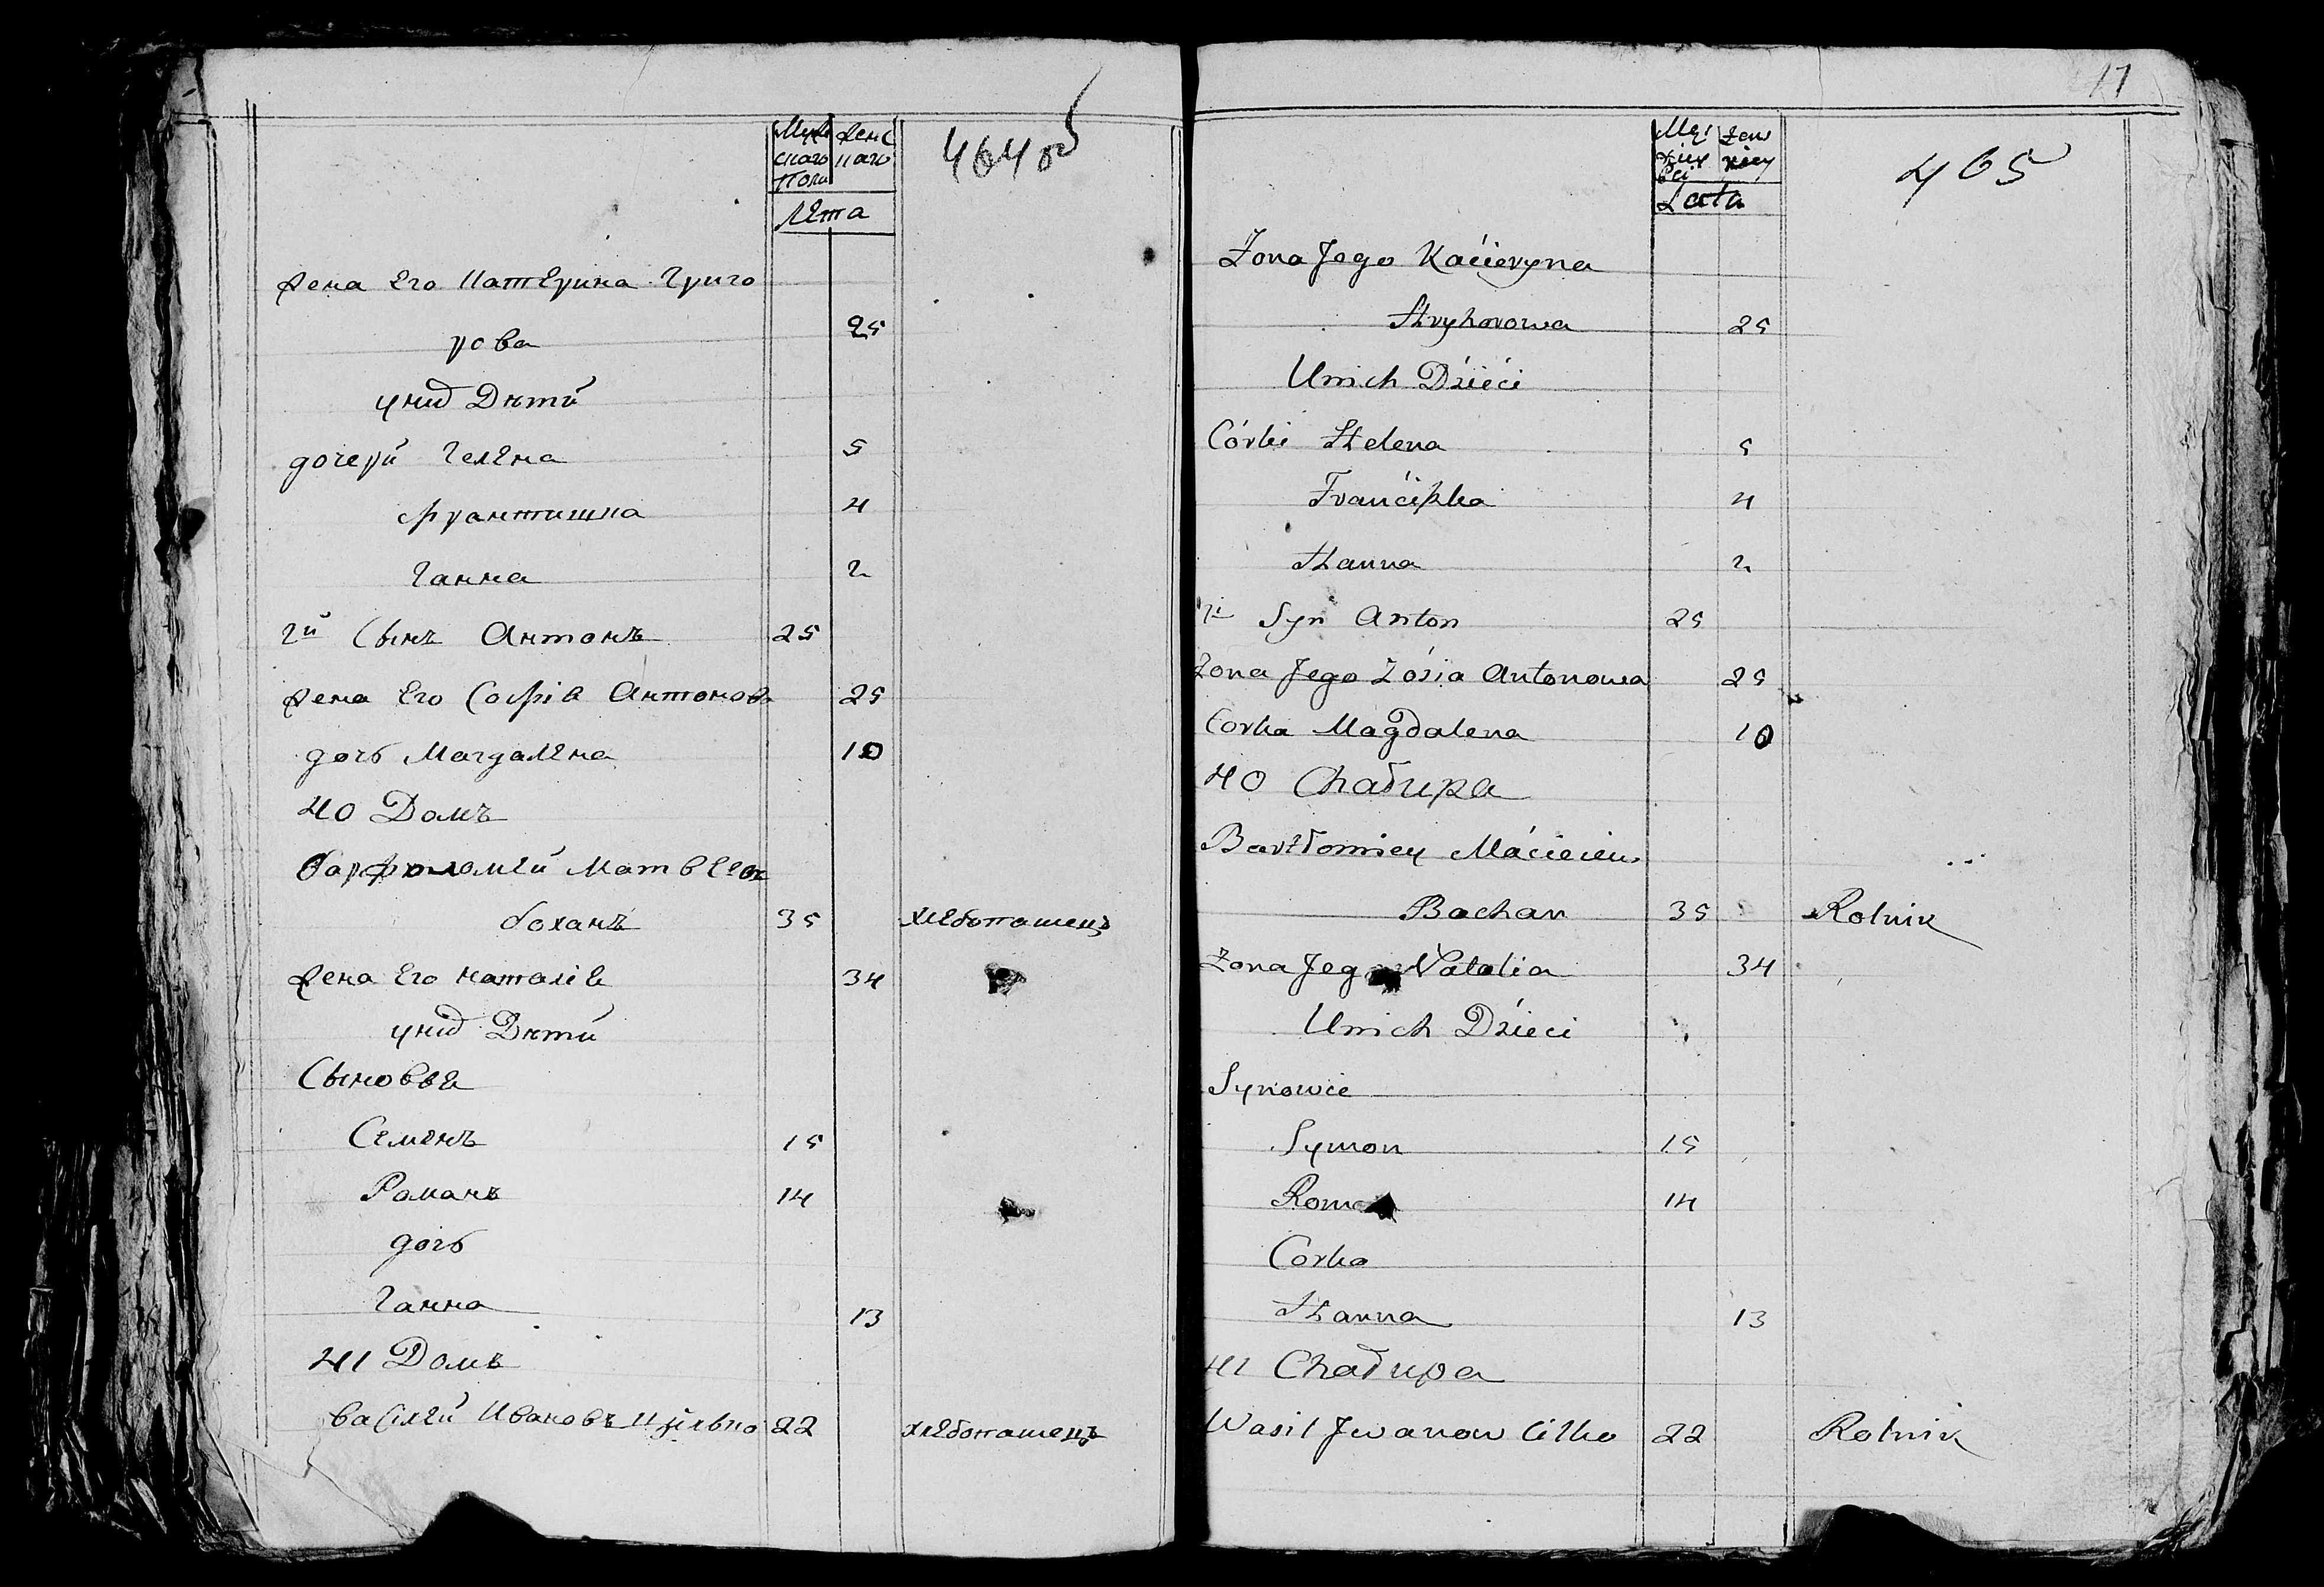 464 об
Муж
скаго
Пола
Жен
скаго
Лѣта
Жена Его Катерина Григо
рова 25
у нид Дѣти
дочери Гелена 5
Франтишка 4
Ганна 2
2й Сынъ Антонъ 25
Жена Его Софіа Антонова 25
дочь Магдалена 10
40 Домъ
Варфоломей Матвеев
Боханъ 35 хлебопашецъ
Жена Его Наталіа 34
у нид Дѣти
Сыновья
Семенъ 15
Романъ 14
дочь
Ганна 13
41 Домъ
Василей Ивановъ Цилько 22 хлебопашецъ
17
465
Męz
kiey
Płci
Żen
skiey
Lata
Żona Jego Kacieryna
Hryhorowa 25
U nich Dzieci
Córki Helena 5
Franciszka 4
Hanna 2
2i Syn Anton 25
Żona Jego Zósia Antonowa 25
Corka Magdalena 10
40 Chałupa
Bartłomiey Macieiew
Bochan 35 Rolnik
Żona Jego Natalia 34
U nich Dzieci
Synowie
Symon 15
Roman 14
Corka
Hanna 13
41 Chałupa
Wasil Jwanow Cilko 22 Rolnik